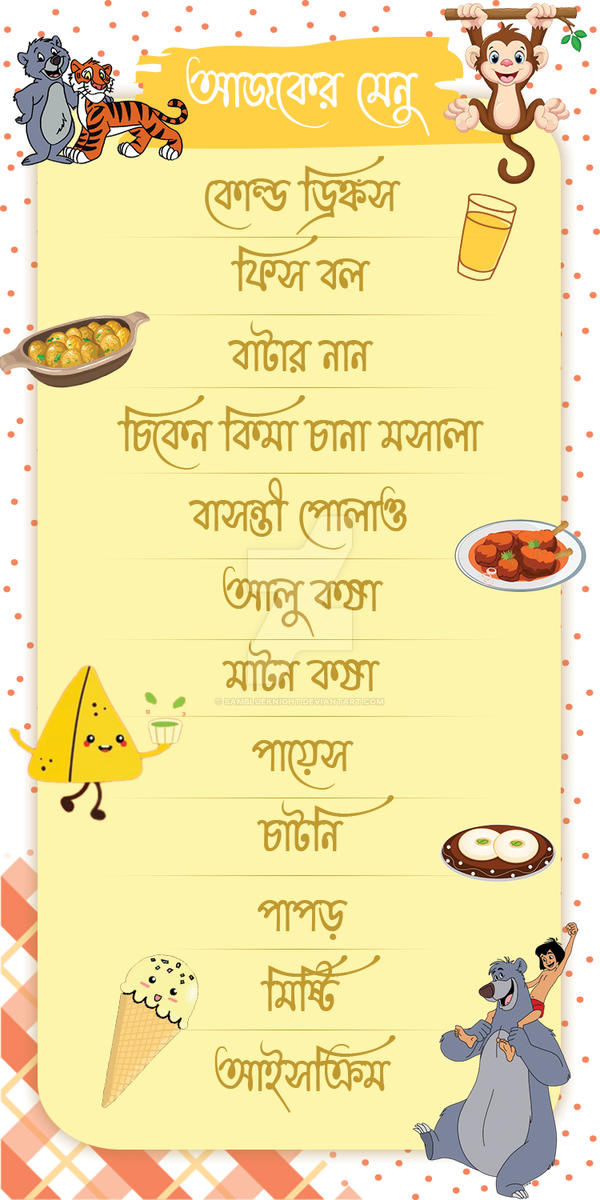 আজকের মেনু
কোল্ড ড্রিঙ্কস
ফিস বল
বাটার নান
চিকেন কিমা চানা মসালা
বাসন্তী পোলাও
আলু কষা
মাটন কষা
© SAMBLUEKNIGHT.DEVIANTART.COM
পায়েস
চাটনি
পাপড়
মিষ্টি
আইসক্রিম